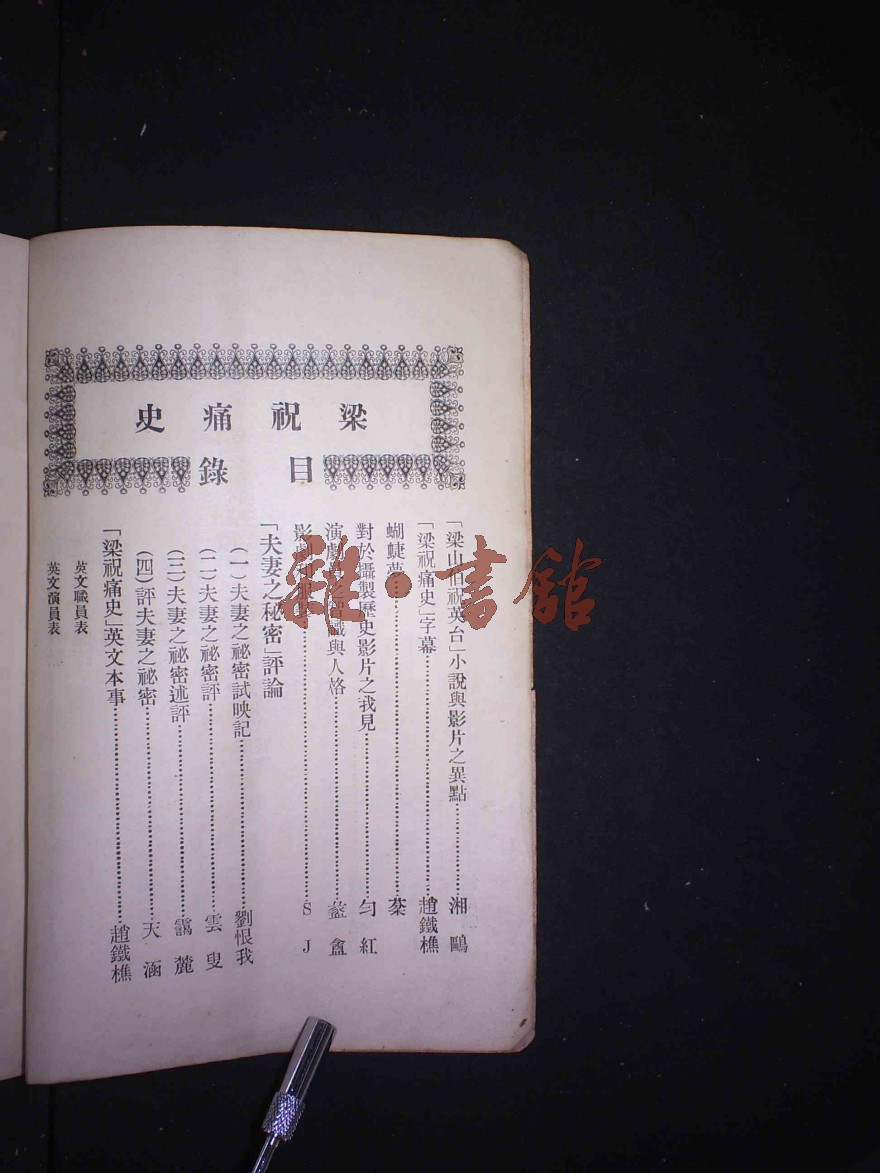 梁祝痛史
目錄
「梁山伯祝英台」小說與影片之異點 湘鷗
「梁祝痛史」字幕 趙鐵樵
蝴蝶夢 棻
對於攝製歷史影片之我見 勻紅
演劇 識與人格 盦
影劇 S J
「夫妻之秘密」評論
(一)夫妻之祕密試映記 劉恨我
(二)夫妻之祕密評 雲叟
(三)夫妻之祕密述評 靄麓
(四)評夫妻之祕密 天涵
「梁祝痛史」英文本事 趙鐵樵
英文職員表
英文演員表
雜·書館